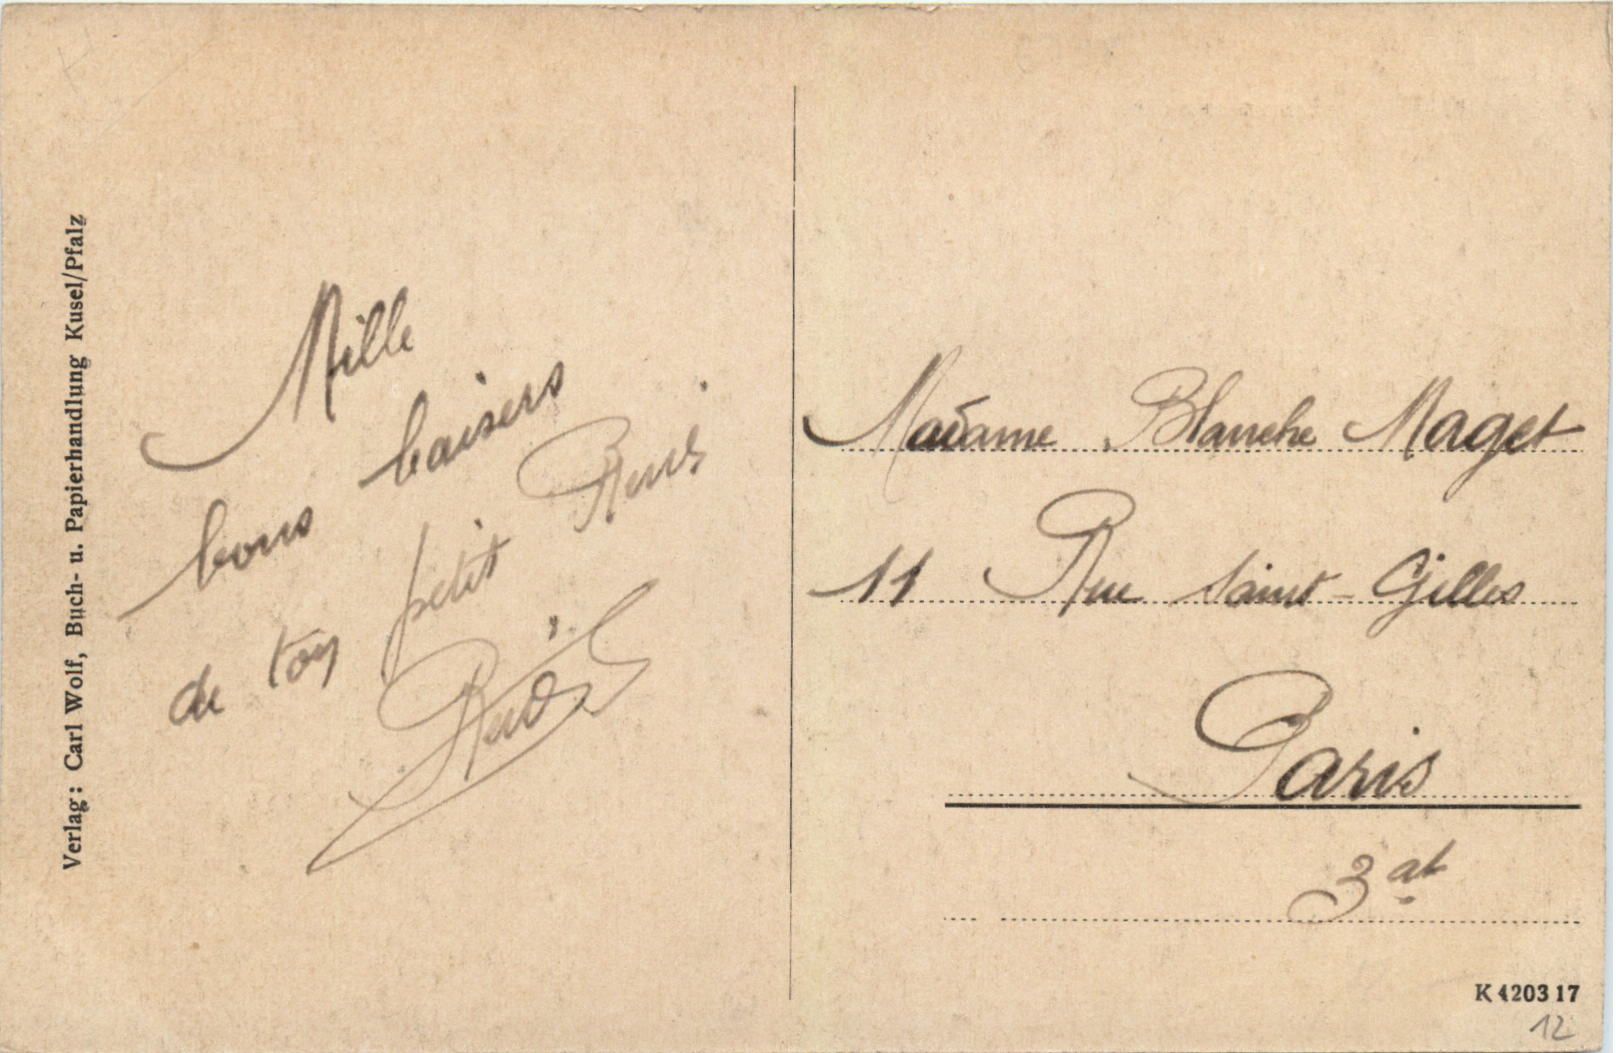 Verlag: Carl Wolf, Buch- u. Papierhandlung Kusel/Pfalz
Mille
bons baisers
de ton petit René
René
Madame Blanche Maget
11 Rue Saint-Gilles
Paris
3 at
K 420317
12